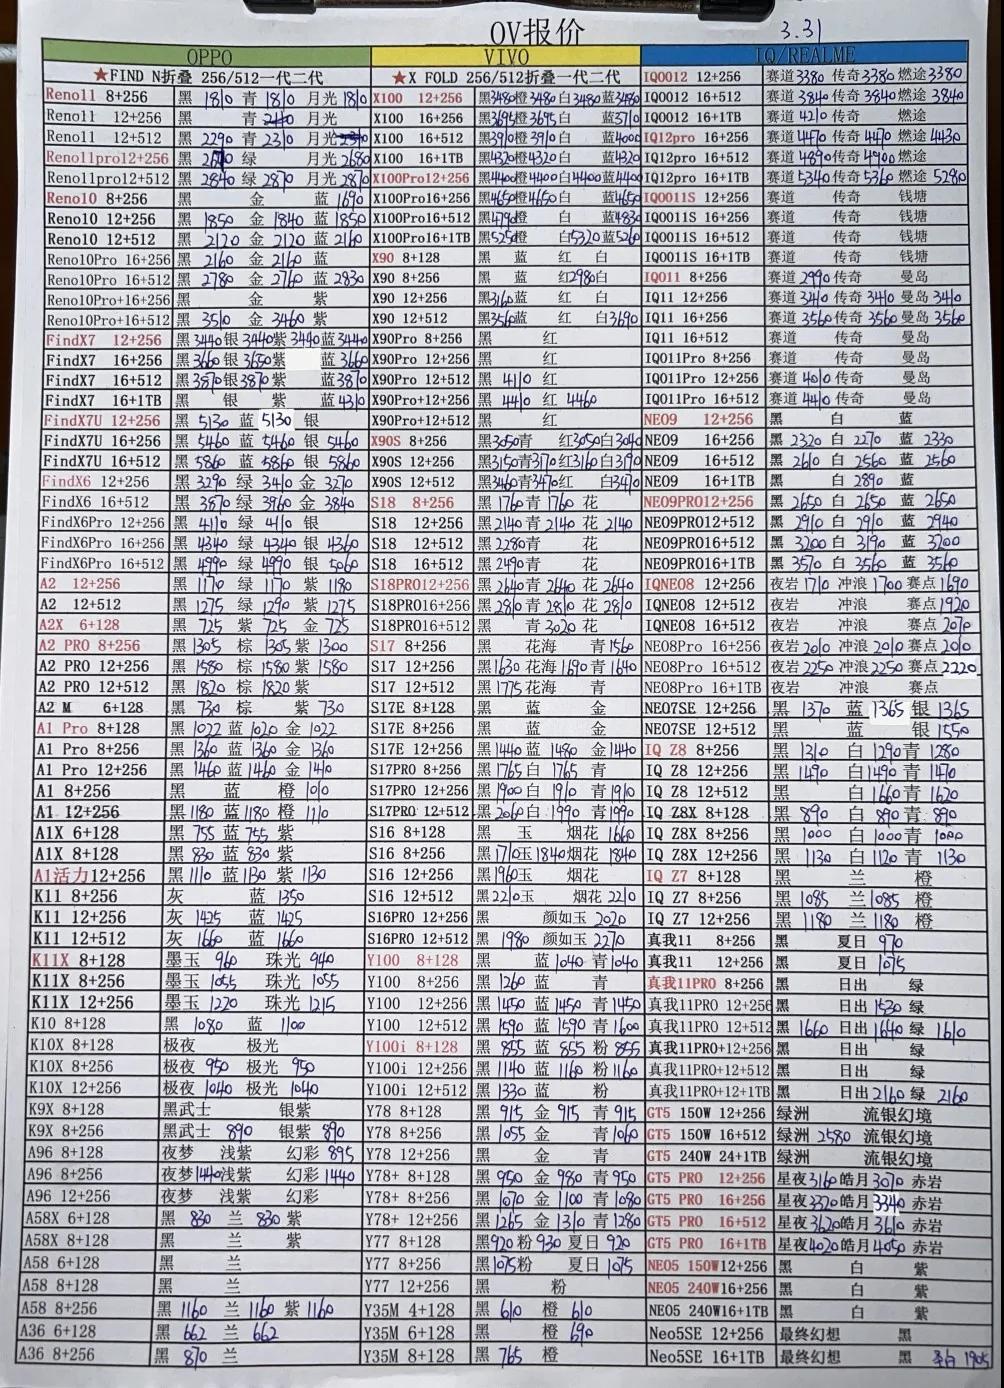 OV报价 3.31
OPPO VIVO IQ/REALME
★FIND N折叠 256/512一代二代 ★X FOLD 256/512折叠一代二代 IQ0012 12+256 赛道3380 传奇3380 燃途3380
Reno11 8+256 黑 1810 青 1810 月光 1810 X100 12+256 黑3480橙3480白3480蓝3480 IQ0012 16+512 赛道3840 传奇3840 燃途3840
Reno11 12+256 黑 青 月光 X100 16+256 黑3695橙3695白 蓝3710 IQ0012 16+1TB 赛道4210 传奇 燃途
Reno11 12+512 黑 2290 青 2310 月光 X100 16+512 黑3910橙3910白 蓝4000 IQ12pro 16+256 赛道4470 传奇4470 燃途4430
Reno11pro12+256 黑 绿 月光2680 X100 16+1TB 黑4320橙4320白 蓝4320 IQ12pro 16+512 赛道4890 传奇4900 燃途
Reno11pro12+512 黑 2840 绿 2870 月光2870 X100Pro12+256 黑4400橙4400白4400蓝4400 IQ12pro 16+1TB 赛道5340 传奇5360 燃途5280
Reno10 8+256 黑 金 蓝 1690 X100Pro16+256 黑4650橙4650白 蓝4650 IQ0011S 12+256 赛道 传奇 钱塘
Reno10 12+256 黑 1850 金 1840 蓝 1850 X100Pro16+512 黑4790橙 白 蓝4830 IQ0011S 16+256 赛道 传奇 钱塘
Reno10 12+512 黑 2120 金 2120 蓝 2160 X100Pro16+1TB 黑5250橙 白5320蓝5260 IQ0011S 16+512 赛道 传奇 钱塘
Reno10Pro 16+256 黑 2160 金 2160 蓝 X90 8+128 黑 蓝 红 白 IQ0011S 16+1TB 赛道 传奇 钱塘
Reno10Pro 16+512 黑 2780 金 2760 蓝 2830 X90 8+256 黑 蓝 红2980白 IQ011 8+256 赛道2990 传奇 曼岛
Reno10Pro+16+256 黑 金 紫 X90 12+256 黑3160蓝 红 白 IQ11 12+256 赛道3410 传奇3410 曼岛3410
Reno10Pro+16+512 黑 3510 金 3460 紫 X90 12+512 黑3560蓝 红 白3690 IQ11 16+256 赛道3560 传奇3560 曼岛3560
FindX7 12+256 黑3440银3440紫3440蓝3440 X90Pro 8+256 黑 红 IQ11 16+512 赛道 传奇 曼岛
FindX7 16+256 黑3660银3650紫 蓝3660 X90Pro 12+256 黑 红 IQ011Pro 8+256 赛道 传奇 曼岛
FindX7 16+512 黑3870银3870紫 蓝3870 X90Pro 12+512 黑 4110 红 IQ011Pro 12+256 赛道4010 传奇 曼岛
FindX7 16+1TB 黑 银 紫 蓝4310 X90Pro+12+256 黑 4410 红 4460 IQ011Pro 16+512 赛道4410 传奇 曼岛
FindX7U 12+256 黑 5130 蓝 5130 银 X90Pro+12+512 黑 红 NEO9 12+256 黑 白 蓝
FindX7U 16+256 黑 5460 蓝 5460 银 5460 X90S 8+256 黑3050青 红3050白3040 NEO9 16+256 黑 2320 白 2270 蓝 2330
FindX7U 16+512 黑 5860 蓝 5860 银 5860 X90S 12+256 黑3150青3170红3160白3190 NEO9 16+512 黑 2610 白 2560 蓝 2560
FindX6 12+256 黑 3290 绿 3410 金 3270 X90S 12+512 黑3460青3470红 白3470 NEO9 16+1TB 黑 白 2890 蓝
FindX6 16+512 黑 3870 绿 3960 金 3840 S18 8+256 黑1760青 1760 花 NEO9PRO12+256 黑 2650 白 2650 蓝 2650
FindX6Pro 12+256 黑 4110 绿 4110 银 S18 12+256 黑2140青 2140 花 2140 NEO9PRO12+512 黑 2910 白 2910 蓝 2940
FindX6Pro 16+256 黑 4340 绿 4340 银 4360 S18 12+512 黑2280青 花 NEO9PRO16+512 黑 3200 白 3190 蓝 3200
FindX6Pro 16+512 黑 4990 绿 4990 银 5060 S18 16+512 黑2490青 花 NEO9PRO16+1TB 黑 3570 白 3560 蓝 3560
A2 12+256 黑 1170 绿 1170 紫 1180 S18PRO12+256 黑2640青 2640 花 2640 IQNEO8 12+256 夜岩 1710 冲浪 1700 赛点1690
A2 12+512 黑 1275 绿 1290 紫 1275 S18PRO16+256 黑2810青 2810 花 2810 IQNEO8 12+512 夜岩 冲浪 赛点1920
A2X 6+128 黑 725 紫 725 金 725 S18PRO16+512 黑 青3020 花 IQNEO8 16+512 夜岩 冲浪 赛点2070
A2 PRO 8+256 黑 1305 棕 1305 紫 1300 S17 8+256 黑 花海 青1560 NEO8Pro 16+256 夜岩2010 冲浪2010 赛点2010
A2 PRO 12+256 黑 1580 棕 1580 紫 1580 S17 12+256 黑1630 花海1690 青1640 NEO8Pro 16+512 夜岩2250 冲浪2250 赛点2220
A2 PRO 12+512 黑 1820 棕 1820 紫 S17 12+512 黑1775花海 青 NEO8Pro 16+1TB 夜岩 冲浪 赛点
A2 M 6+128 黑 730 棕 紫 730 S17E 8+128 黑 蓝 金 NEO7SE 12+256 黑 1370 蓝 1365 银 1365
A1 Pro 8+128 黑 1022 蓝 1020 金 1022 S17E 8+256 黑 蓝 金 NEO7SE 12+512 黑 蓝 银1550
A1 Pro 8+256 黑 1360 蓝 1360 金 1360 S17E 12+256 黑1440蓝 1480 金1440 IQ Z8 8+256 黑 1310 白 1290青 1280
A1 Pro 12+256 黑 1460 蓝 1460 金 1410 S17PRO 8+256 黑1765白 1765 青 IQ Z8 12+256 黑 1490 白1490青 1470
A1 8+256 黑 蓝 橙 1010 S17PRO 12+256 黑1900白 1910 青1910 IQ Z8 12+512 黑 白1660青 1620
A1 12+256 黑 1180 蓝 1180 橙 1110 S17PRO 12+512 黑2060白 1990 青1990 IQ Z8X 8+128 黑 890 白 890青 890
A1X 6+128 黑 755 蓝 755 紫 S16 8+128 黑 玉 烟花 1660 IQ Z8X 8+256 黑 1000 白1000青 1000
A1X 8+128 黑 830 蓝 830 紫 S16 8+256 黑1710玉1840烟花 1840 IQ Z8X 12+256 黑 1130 白 1120 青 1130
A1活力12+256 黑 1110 蓝 1130 紫 1130 S16 12+256 黑1960玉 烟花 IQ Z7 8+128 黑 兰 橙
K11 8+256 灰 蓝 1350 S16 12+512 黑2210玉 烟花 2210 IQ Z7 8+256 黑 1085 兰1085 橙
K11 12+256 灰 1425 蓝 1425 S16PRO 12+256 黑 颜如玉 2020 IQ Z7 12+256 黑 1180 兰1180 橙
K11 12+512 灰 1660 蓝 1660 S16PRO 12+512 黑 1980 颜如玉 2270 真我11 8+256 黑 夏日 970
K11X 8+128 墨玉 960 珠光 940 Y100 8+128 黑 蓝1040 青1040 真我11 12+256 黑 夏日 1075
K11X 8+256 墨玉 1055 珠光 1055 Y100 8+256 黑 1260 蓝 青 真我11PRO 8+256 黑 日出 绿
K11X 12+256 墨玉 1220 珠光 1215 Y100 12+256 黑 1450 蓝 1450 青1450 真我11PRO 12+256 黑 日出1530 绿
K10 8+128 黑 1080 蓝 1100 Y100 12+512 黑 1590 蓝 1590 青1600 真我11PRO 12+512 黑 1660 日出1640 绿 1610
K10X 8+128 极夜 极光 Y100i 8+128 黑 855 蓝 855 粉 855 真我11PRO+12+256 黑 日出 绿
K10X 8+256 极夜 950 极光 950 Y100i 12+256 黑 1140 蓝 1160 粉1160 真我11PRO+12+512 黑 日出 绿
K10X 12+256 极夜 1040 极光 1040 Y100i 12+512 黑 1330 蓝 粉 真我11PRO+12+1TB 黑 日出2160 绿 2160
K9X 8+128 黑武士 银紫 Y78 8+128 黑 915 金 915 青 915 GT5 150W 12+256 绿洲 流银幻境
K9X 8+256 黑武士 890 银紫 890 Y78 8+256 黑 1055 金 青 1060 GT5 150W 16+512 绿洲 2580 流银幻境
A96 8+128 夜梦 浅紫 幻彩 895 Y78 12+256 黑 金 青 GT5 240W 24+1TB 绿洲 流银幻境
A96 8+256 夜梦1440浅紫 幻彩1440 Y78+ 8+128 黑 950 金 980 青 950 GT5 PRO 12+256 星夜3160皓月3070 赤岩
A96 12+256 夜梦 浅紫 幻彩 Y78+ 8+256 黑 1070 金 1100 青1080 GT5 PRO 16+256 星夜3320皓月3340 赤岩
A58X 6+128 黑 830 兰 830 紫 Y78+ 12+256 黑1265 金 1310 青1280 GT5 PRO 16+512 星夜3620皓月3610 赤岩
A58X 8+128 黑 兰 紫 Y77 8+128 黑920 粉 930 夏日 920 GT5 PRO 16+1TB 星夜4020皓月4050 赤岩
A58 6+128 黑 兰 Y77 8+256 黑1075粉 夏日 1075 NEO5 150W12+256 黑 白 紫
A58 8+128 黑 兰 Y77 12+256 黑 粉 NEO5 240W16+256 黑 白 紫
A58 8+256 黑 1160 兰 1160 紫 1160 Y35M 4+128 黑 610 橙 610 NEO5 240W16+1TB 黑 白 紫
A36 6+128 黑 662 兰 662 Y35M 6+128 黑 橙 690 Neo5SE 12+256 最终幻想 黑
A36 8+256 黑 870 兰 Y35M 8+128 黑 765 橙 Neo5SE 16+1TB 最终幻想 黑 1905